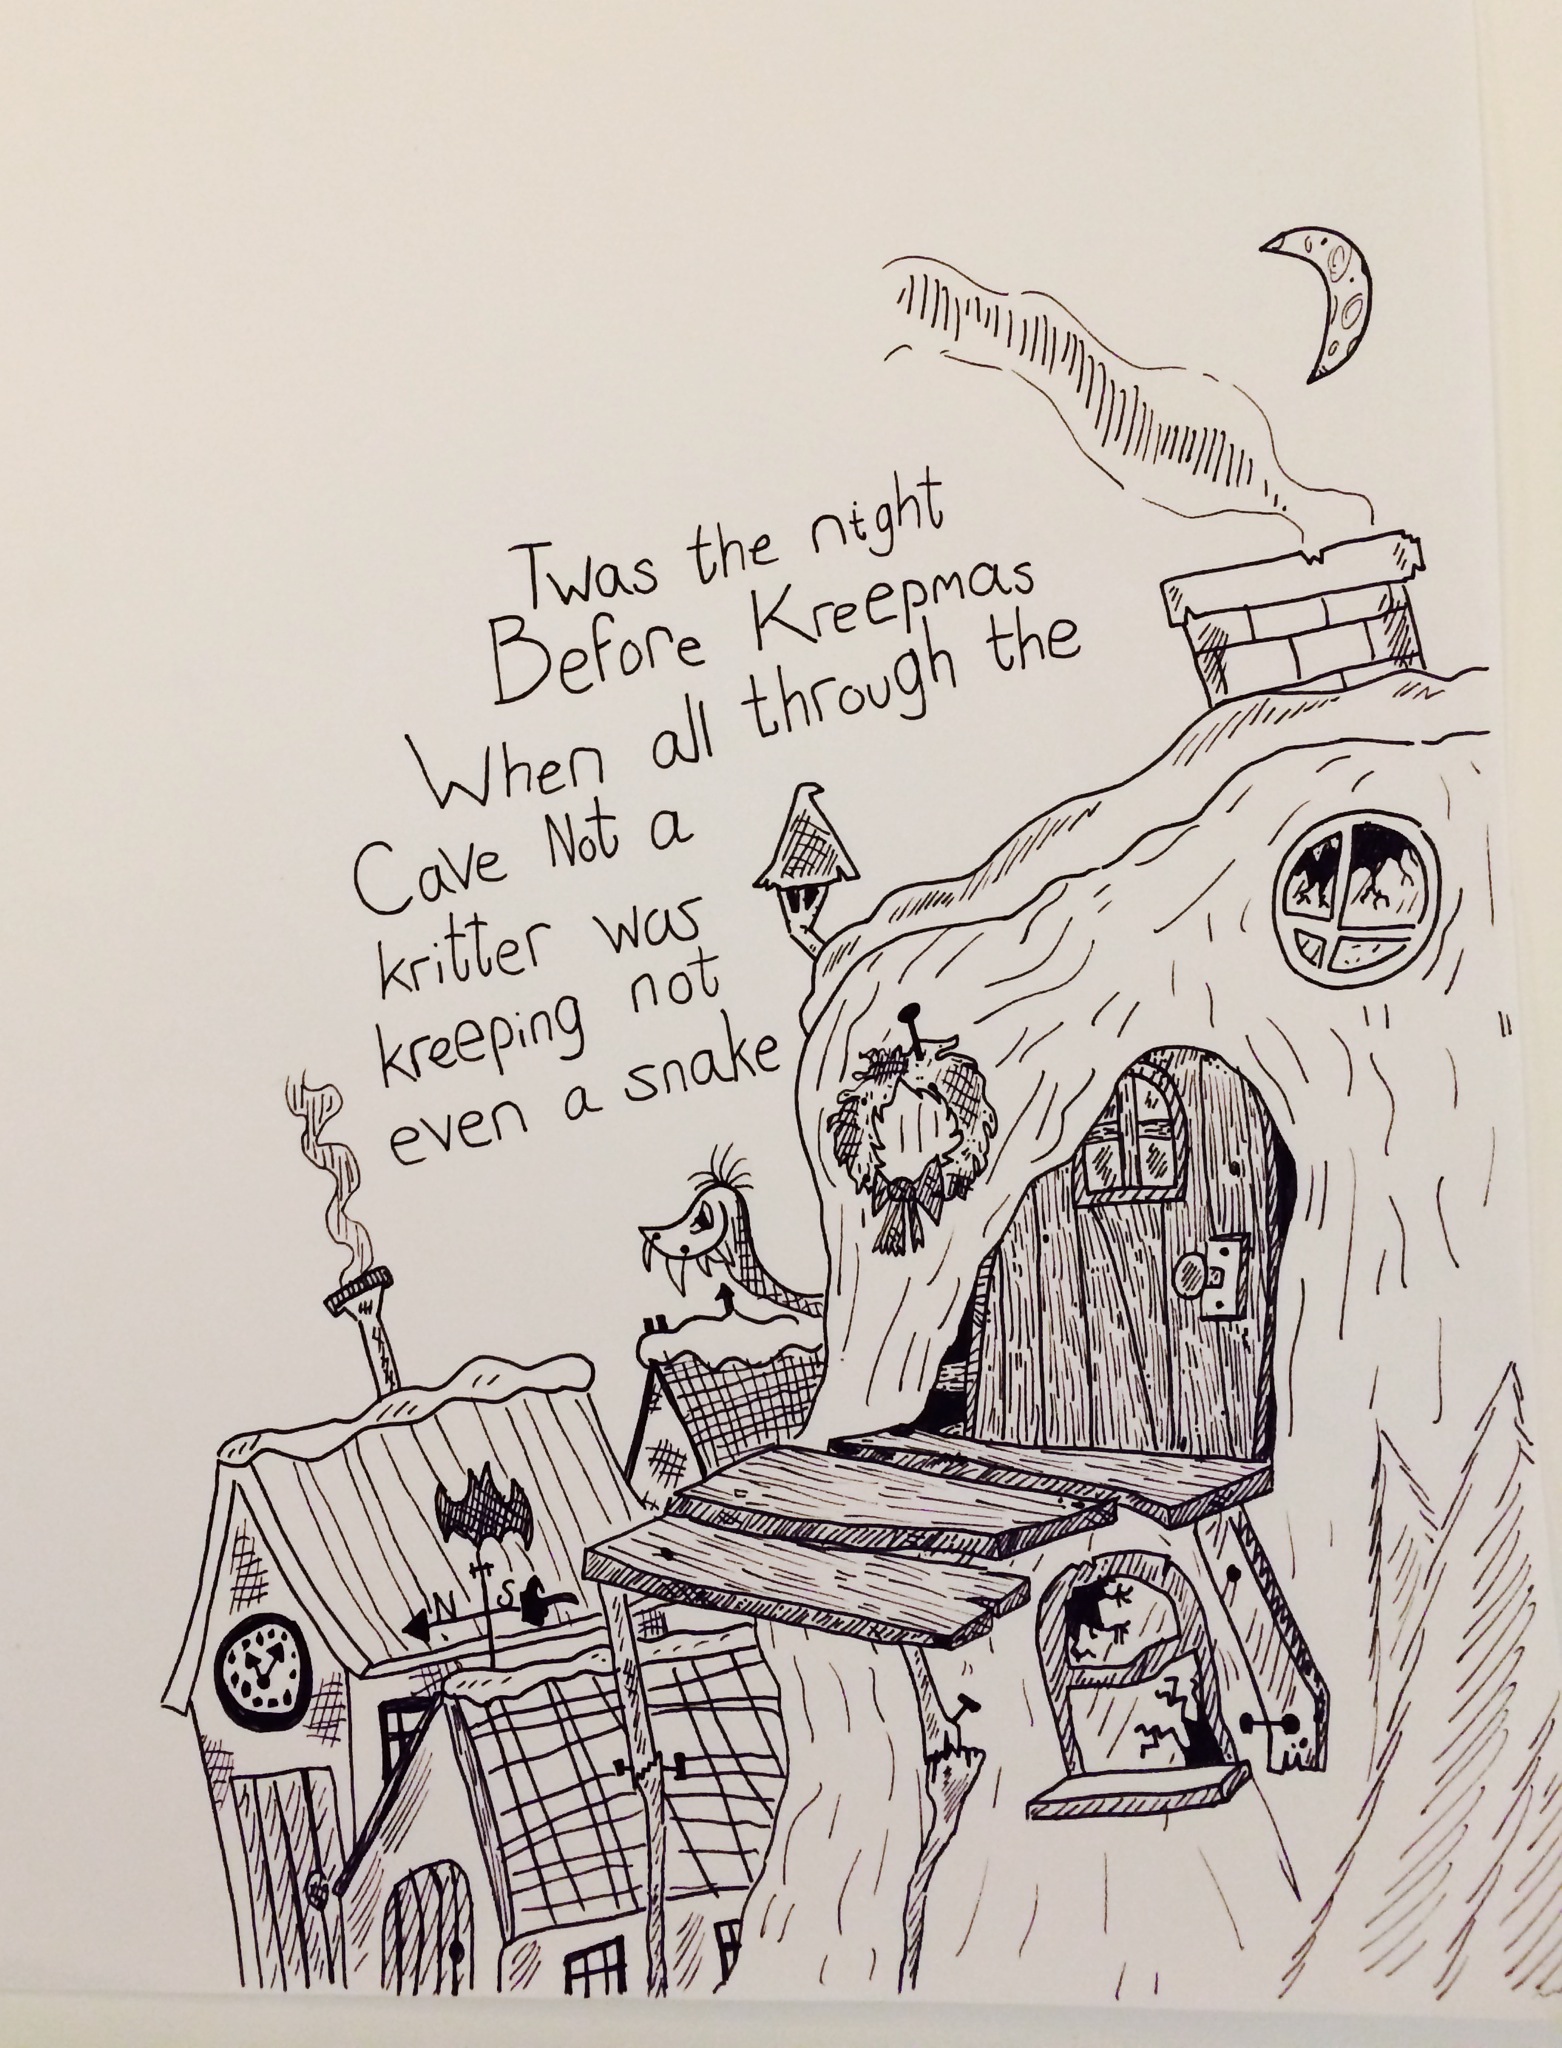 Twas the night
Before Kreepmas
When all through the
Cave Not a
kritter was
kreeping not
even a snake
N S